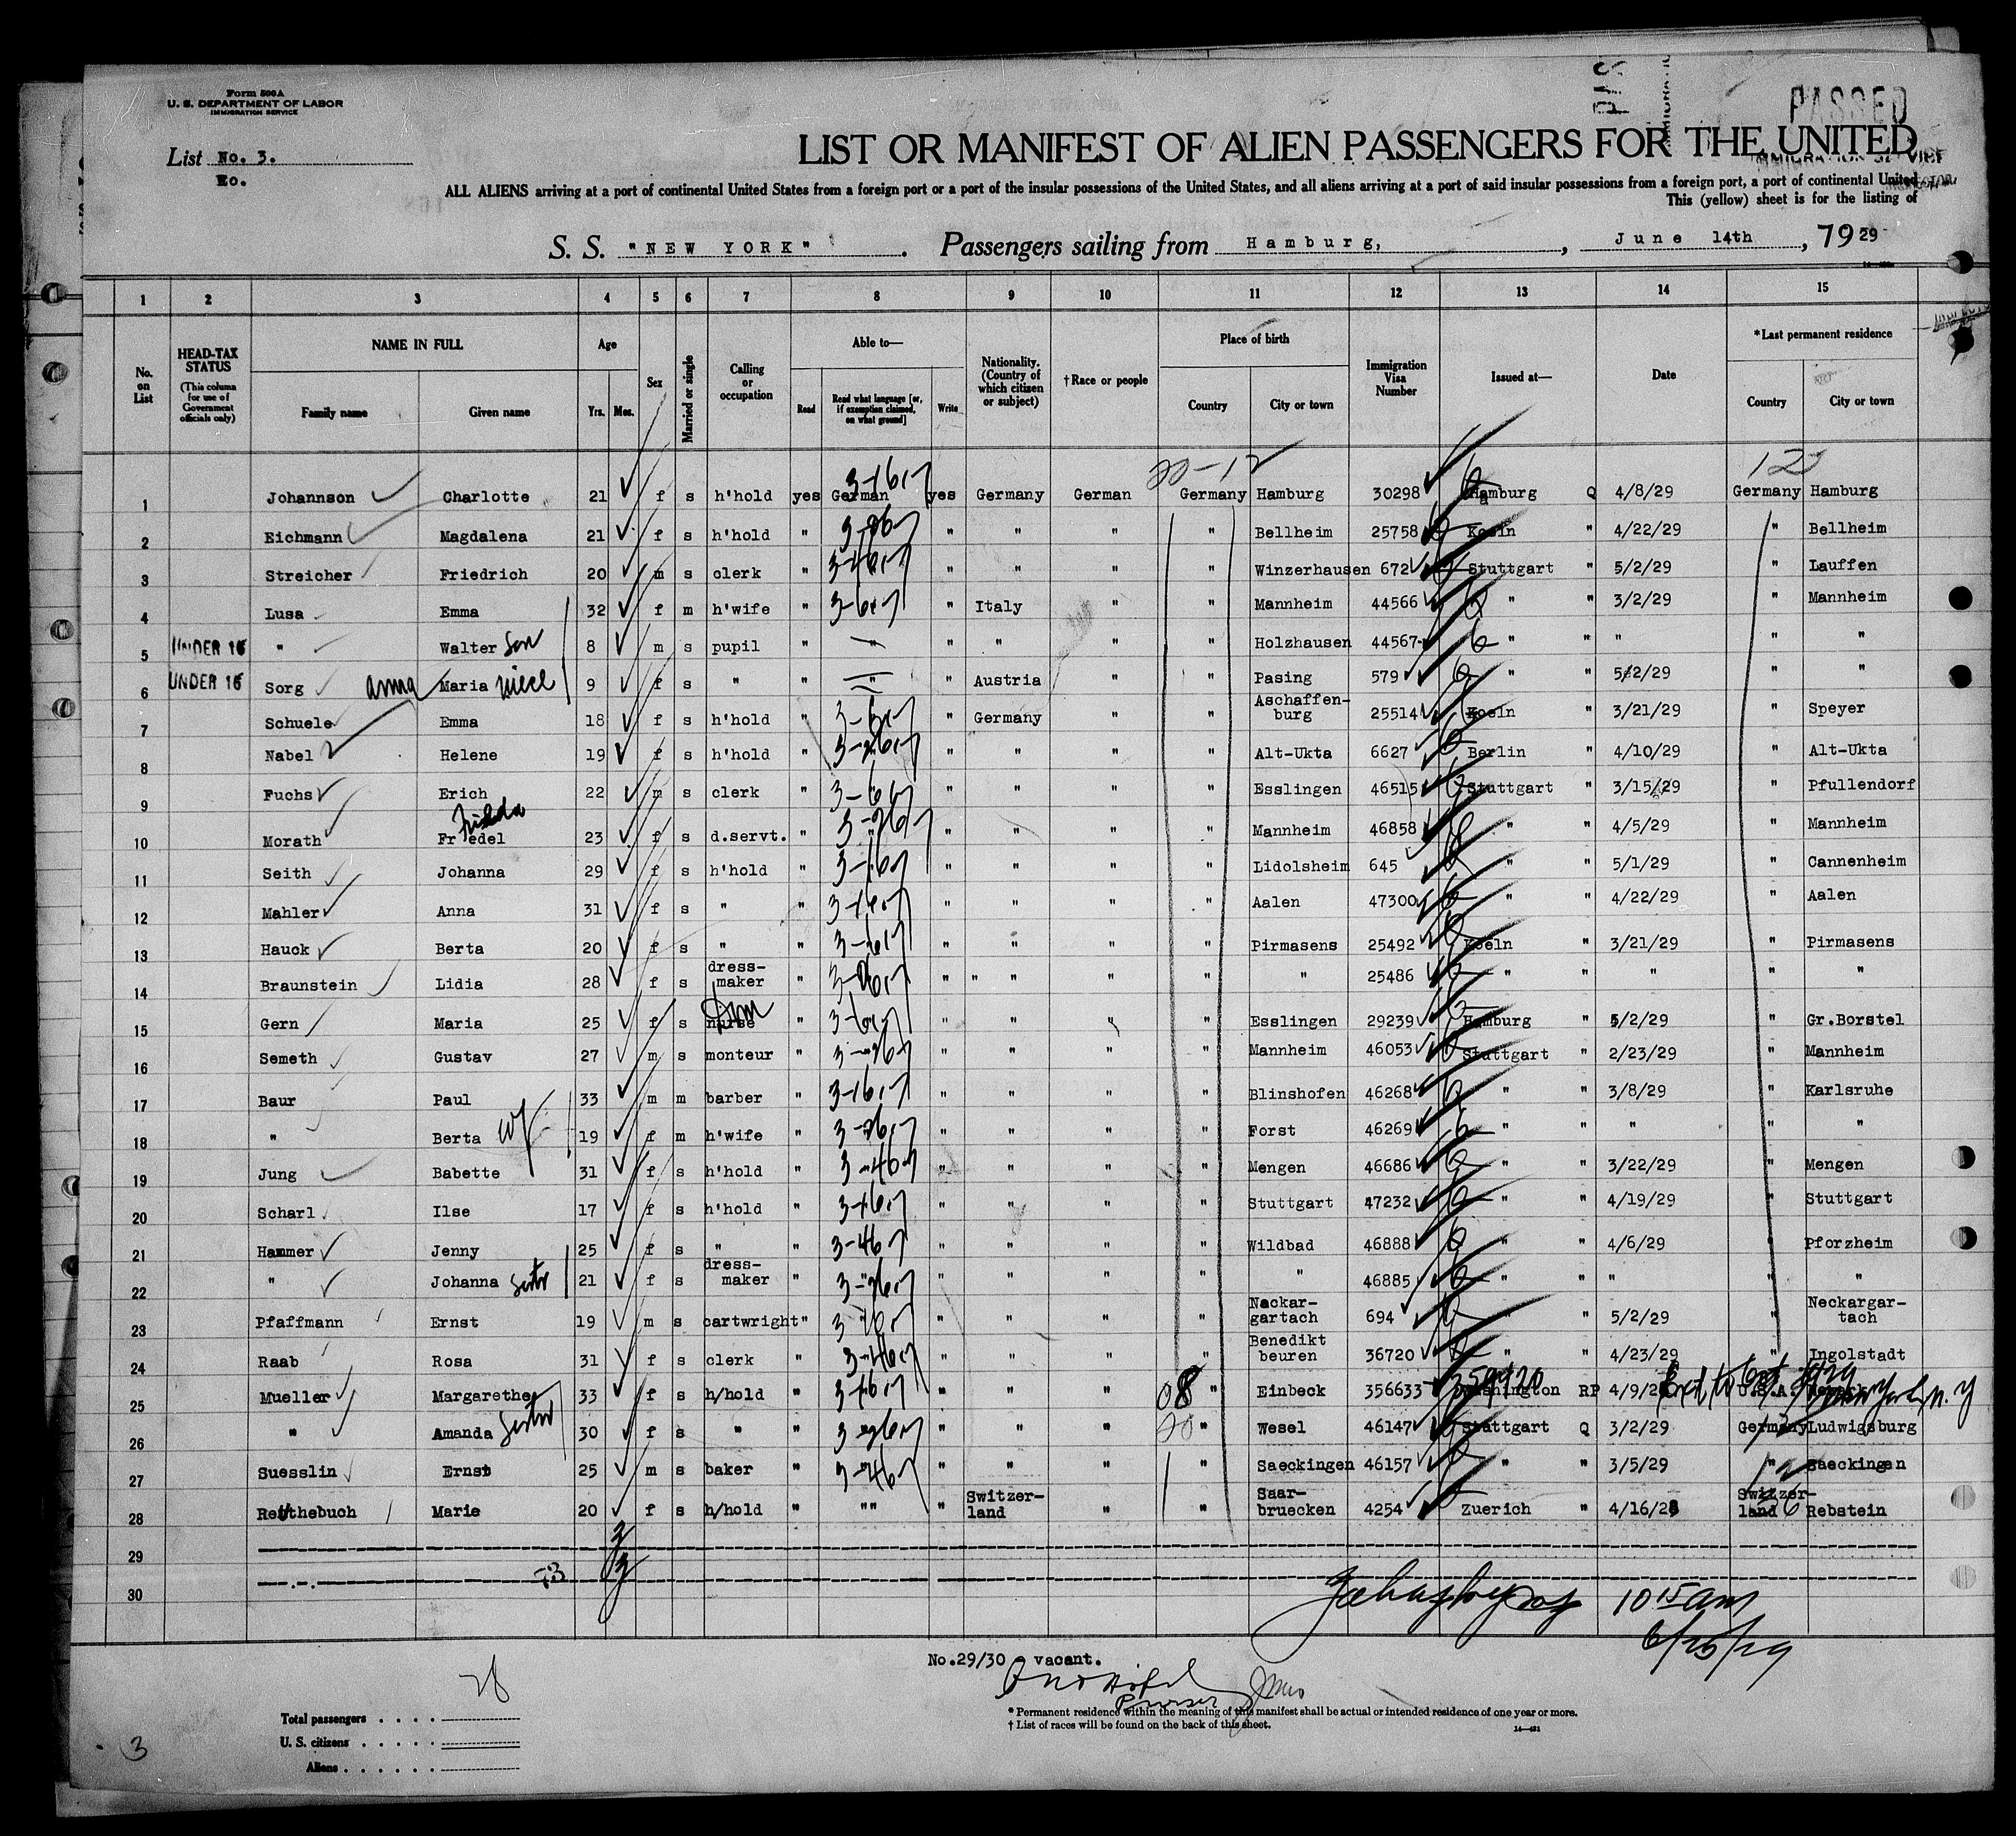 Form 500A
U. S. DEPARTMENT OF LABOR
IMMIGRATION SERVICE
PASSED
List No. 3.
No.
LIST OR MANIFEST OF ALIEN PASSENGERS FOR THE UNITED
ALL ALIENS arriving at a port of continental United States from a foreign port or a port of the insular possessions of the United States, and all aliens arriving at a port of said insular possessions from a foreign port, a port of continental United
This (yellow) sheet is for the listing of
S. S. "NEW YORK" . Passengers sailing from Hamburg, , June 14th , 1929
1 2 3 4 5 6 7 8 9 10 11 12 13 14 15
No. on List HEAD-TAX STATUS (This column for use of Government officials only) NAME IN FULL Family name Given name Age Yrs. Mos. Sex Married or single Calling or occupation Able to— Read Read what language [or, if exemption claimed, on what ground] Write Nationality. (Country of which citizen or subject) †Race or people Place of birth Country City or town Immigration Visa Number Issued at— Date *Last permanent residence Country City or town
20-12 12
1 Johannson Charlotte 21 f s h'hold yes German yes Germany German Germany Hamburg 30298 Hamburg Q 4/8/29 Germany Hamburg
2 Eichmann Magdalena 21 f s h'hold " " " " " Bellheim 25758 Koeln " 4/22/29 " Bellheim
3 Streicher Friedrich 20 m s clerk " " " " " Winzerhausen 672 Stuttgart " 5/2/29 " Lauffen
4 Lusa Emma 32 f m h'wife " " Italy " " Mannheim 44566 " " 3/2/29 " Mannheim
5 UNDER 16 " Walter Son 8 m s pupil " " " " " " Holzhausen 44567 " " " " "
6 UNDER 16 Sorg Anna Maria niece 9 f s " " " " Austria " " Pasing 579 " " 5/2/29 " "
7 Schuele Emma 18 f s h'hold " " Germany " " Aschaffen-burg 25514 Koeln " 3/21/29 " Speyer
8 Nabel Helene 19 f s h'hold " " " " " Alt-Ukta 6627 Berlin " 4/10/29 " Alt-Ukta
9 Fuchs Erich 22 m s clerk " " " " " Esslingen 46515 Stuttgart " 3/15/29 " Pfullendorf
10 Morath Friedel Frieda 23 f s d.servt. " " " " " Mannheim 46858 " " 4/5/29 " Mannheim
11 Seith Johanna 29 f s h'hold " " " " " Lidolsheim 645 " " 5/1/29 " Cannenheim
12 Mahler Anna 31 f s " " " " " " Aalen 47300 " " 4/22/29 " Aalen
13 Hauck Berta 20 f s " " " " " " Pirmasens 25492 Koeln " 3/21/29 " Pirmasens
14 Braunstein Lidia 28 f s dress-maker " " " " " " 25486 " " " " "
15 Gern Maria 25 f s nurse " " " " " Esslingen 29239 Hamburg " 5/2/29 " Gr.Borstel
16 Semeth Gustav 27 m s monteur " " " " " Mannheim 46053 Stuttgart " 2/23/29 " Mannheim
17 Baur Paul 33 m m barber " " " " " Blinshofen 46268 " " 3/8/29 " Karlsruhe
18 " Berta wf. 19 f m h'wife " " " " " Forst 46269 " " " " "
19 Jung Babette 31 f s h'hold " " " " " Mengen 46686 " " 3/22/29 " Mengen
20 Scharl Ilse 17 f s h'hold " " " " " Stuttgart 47232 " " 4/19/29 " Stuttgart
21 Hammer Jenny 25 f s " " " " " " Wildbad 46888 " " 4/6/29 " Pforzheim
22 " Johanna Sister 21 f s dress-maker " " " " " " 46885 " " " " "
23 Pfaffmann Ernst 19 m s cartwright " " " " " Nackar-gartach 694 " " 5/2/29 " Neckargar-tach
24 Raab Rosa 31 f s clerk " " " " " Benedikt beuren 36720 " " 4/23/29 " Ingolstadt
25 Mueller Margarethe 33 f s h/hold " " " " 08 " Einbeck 356633 359420 Washington RP 4/9/29 U.S.A. New York, N.Y
26 " Amanda Sister 30 f s " " " " " 20 " Wesel 46147 Stuttgart Q 3/2/29 Germany Ludwigsburg
27 Suesslin Ernst 25 m s baker " " " " " Saeckingen 46157 " " 3/5/29 " Saeckingen
28 Reuthebuch Marie 20 f s h/hold " "" " Switzer-land " " Saar-bruecken 4254 Zuerich " 4/16/28 Switzer-land Rebstein
29
30
73
10 15 am
6/25/29
No.29/30 vacant.
Purser
28
* Permanent residence within the meaning of this manifest shall be actual or intended residence of one year or more.
† List of races will be found on the back of this sheet.
14—421
Total passengers . . . .
U. S. citizens . . . . .
Aliens . . . . . .
3